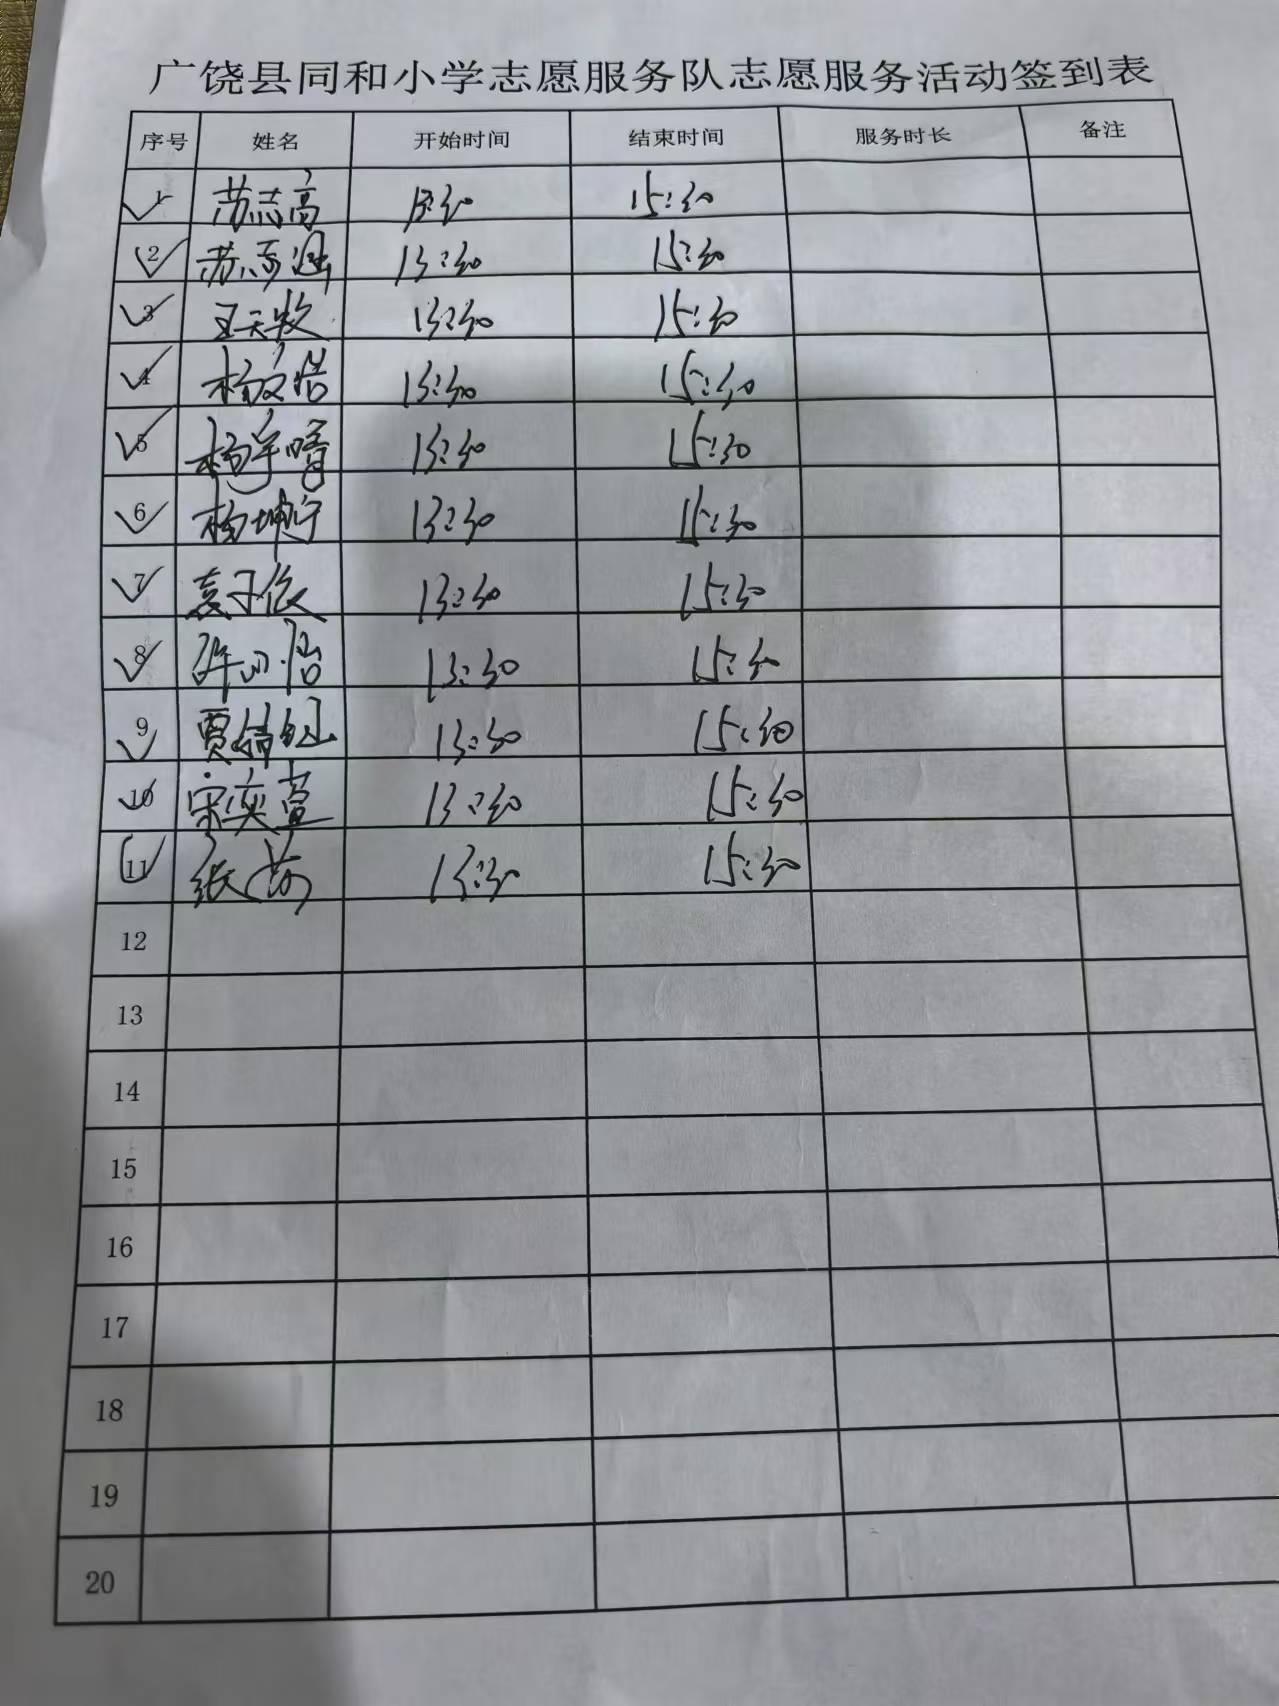 广饶县同和小学志愿服务队志愿服务活动签到表
序号 姓名 开始时间 结束时间 服务时长 备注
1 苏志高 13:30 15:30
2 苏 13:30 15:30
3 王天牧 13:30 15:30
4 杨 13:30 15:30
5 杨宇晴 13:30 15:30
6 杨坤宁 13:30 15:30
7 袁子依 13:30 15:30
8 13:30 15:30
9 贾 13:30 15:30
10 宋奕萱 13:30 15:30
11 张 13:30 15:30
12
13
14
15
16
17
18
19
20